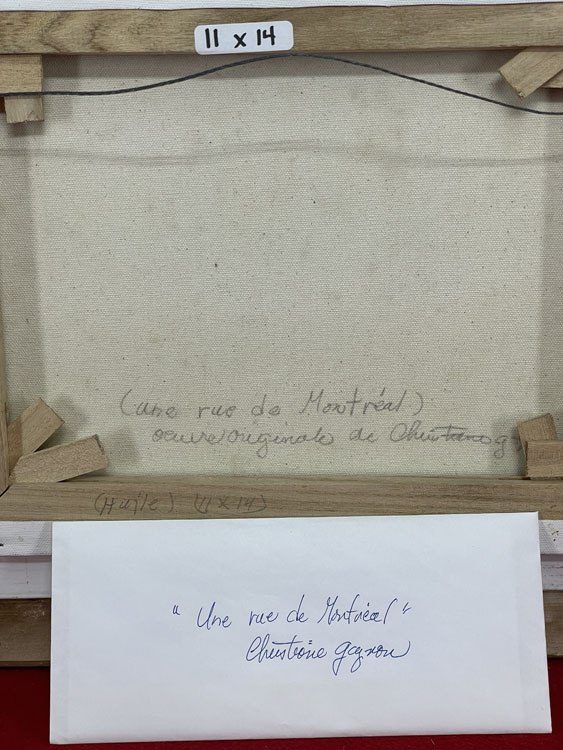 11 x 14
(une rue de Montréal)
oeuvre originale de Christiane g
(Huile) (11 x 14)
" Une rue de Montréal "
Christine gagnon